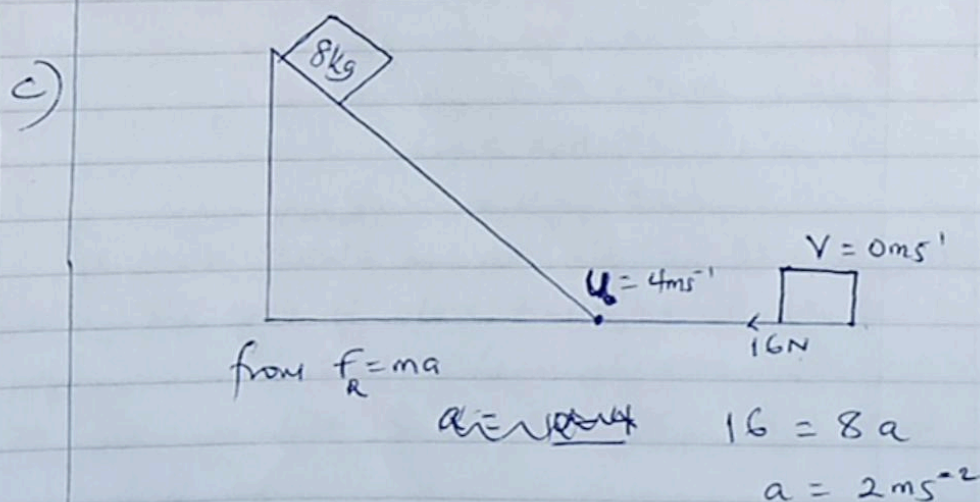 c)
8kg
V = 0ms¹
u = 4ms⁻¹
16N
from F_R = ma
16 = 8a
a = 2ms⁻²